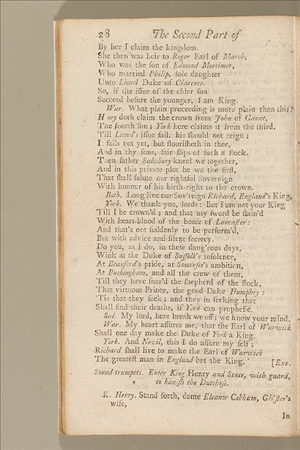 28 The Second Part of
By her I claim the kingdom.
She then was heir to Roger Earl of March,
Who was the son of Edmund Mortimer,
Who married Philip, sole daughter
Unto Lionel Duke of Clarence.
So, if the issue of the elder son
Succeed before the younger, I am King.
War. What plain proceeding is more plain than this?
Henry doth claim the crown from John of Gaunt,
The fourth son; York here claims it from the third.
Till Lionel's issue fail, his should not reign;
It fails not yet, but flourisheth in thee,
And in thy sons, fair slips of such a stock.
Then father Salisbury kneel we together,
And in this private plot be we the first,
That shall salute our rightful Sovereign
With honour of his birth-right to the crown.
Both. Long live our Sov'reign Richard, England's King,
York. We thank you, lords: But I am not your King
Till I be crown'd; and that my sword be stain'd
With heart-blood of the house of Lancaster:
And that's not suddenly to be perform'd,
But with advice and silent secrecy.
Do you, as I do, in these dang'rous days,
Wink at the Duke of Suffolk's insolence,
At Beauford's pride, at Somerset's ambition,
At Buckingham, and all the crew of them,
Till they have snar'd the shepherd of the flock,
That virtuous Prince, the good Duke Humphry:
'Tis that they seek; and they in seeking that
Shall find their deaths, if York can prophesie.
Sal. My lord, here break we off; we know your mind.
War. My heart assures me, that the Earl of Warwick
Shall one day make the Duke of York a King.
York. And Nevil, this I do assure my self;
Richard shall live to make the Earl of Warwick
The greatest man in England but the King. [Exe.
Sound trumpets. Enter King Henry and State, with guard,
to banish the Dutchess.
K. Henry. Stand forth, dame Eleanor Cobham, Glo'ster's
wife,
In